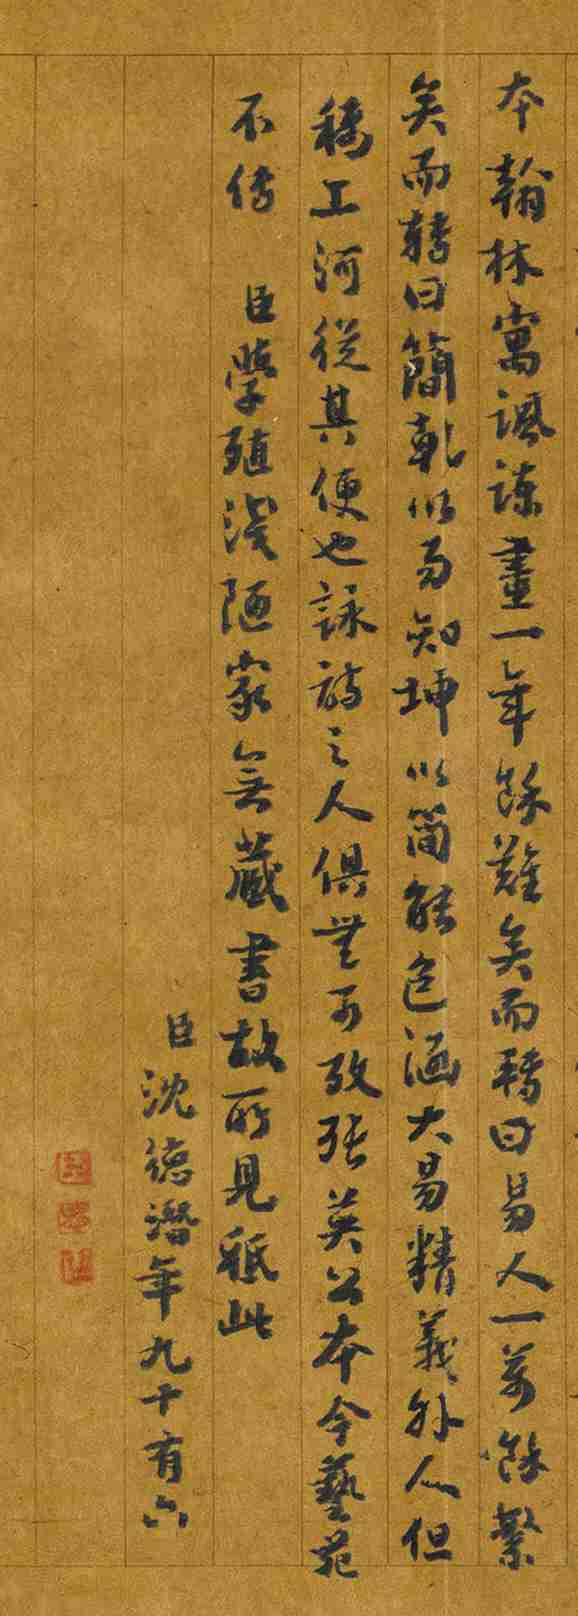 本翰林寓諷諫畫一年餘難矣而轉曰易人一萬餘繁
矣而轉曰簡乾以易知坤以簡能包涵大易精義外人但
稱工河從其便也詠詩之人俱無可攷張英公本今藝苑
不傳 臣學殖淺陋家無藏書故所見秪此
臣沈德潛年九十有六